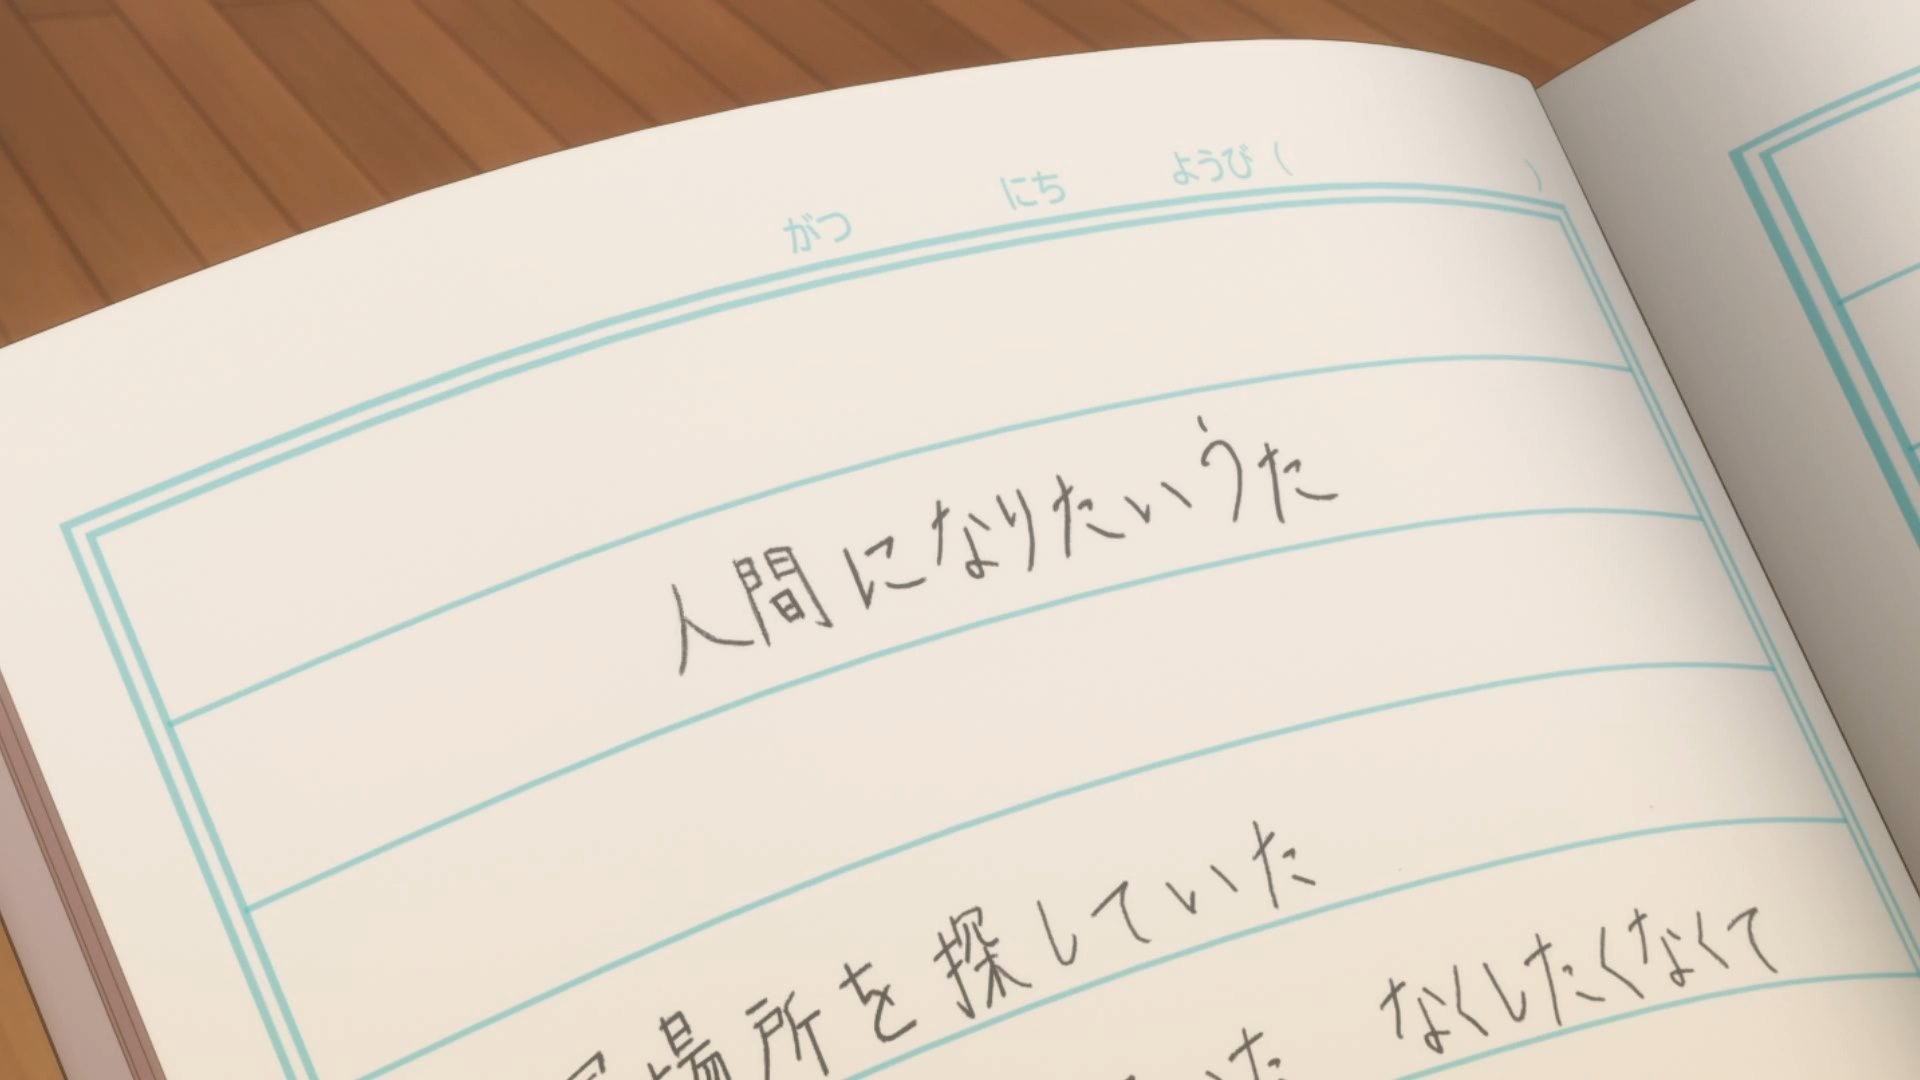 がつ にち ようび ( )
人間になりたいうた
場所を探していた
いた なくしたくなくて